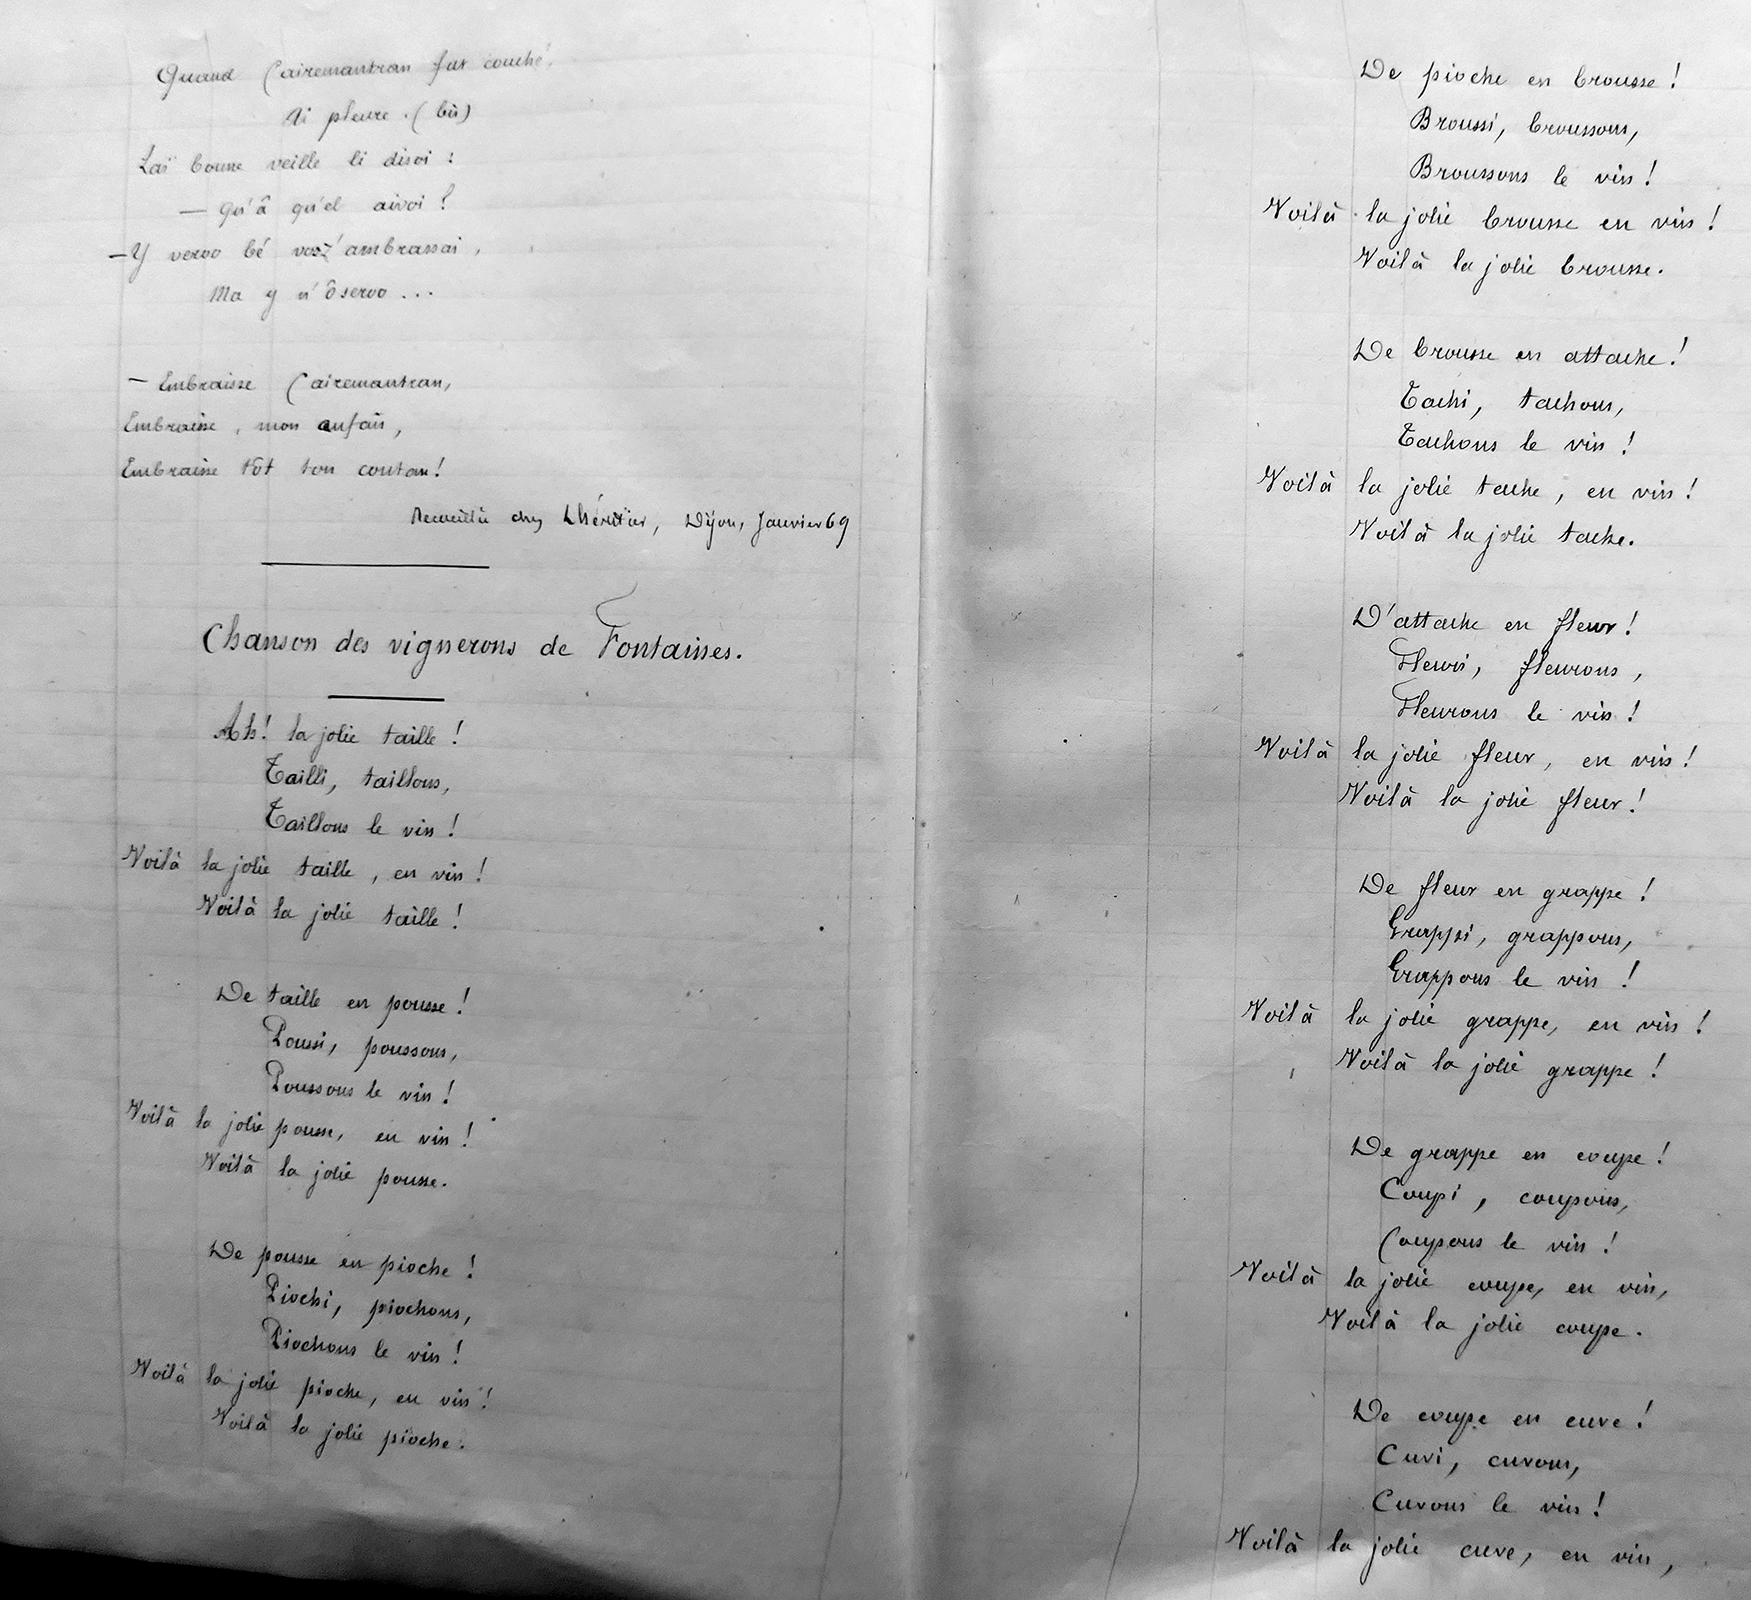 Quand Cairemantran fut couché,
Ai pleure. (bis)
Lai bonne veille li disoi :
— Qu'â qu'el aivoi ?
— Y veroo bé vos z'ambrassai,
Ma y n'ôseroo...
— Embraisse Cairemantran,
Embraisse, mon anfan,
Embraisse tôt ton coutan !
Recueillie chez Lhéritier, Dijon, Janvier 69
Chanson des vignerons de Fontaines.
Ah! la jolie taille !
Tailli, taillons,
Taillons le vin !
Voilà la jolie taille, en vin !
Voilà la jolie taille !
De taille en pousse !
Poussi, poussons,
Poussons le vin !
Voilà la jolie pousse, en vin !
Voilà la jolie pousse.
De pousse en pioche !
Piochi, piochons,
Piochons le vin !
Voilà la jolie pioche, en vin !
Voilà la jolie pioche.
De pioche en brousse !
Broussi, broussons,
Broussons le vin !
Voilà la jolie brousse en vin !
Voilà la jolie brousse.
De brousse en attache !
Tachi, tachons,
Tachons le vin !
Voilà la jolie tache, en vin !
Voilà la jolie tache.
D'attache en fleur !
Fleuri, fleurons,
Fleurons le vin !
Voilà la jolie fleur, en vin !
Voilà la jolie fleur !
De fleur en grappe !
Grappi, grappons,
Grappons le vin !
Voilà la jolie grappe, en vin !
Voilà la jolie grappe !
De grappe en coupe !
Coupi, coupons,
Coupons le vin !
Voilà la jolie coupe, en vin,
Voilà la jolie coupe.
De coupe en cuve !
Cuvi, cuvons,
Cuvons le vin !
Voilà la jolie cuve, en vin,